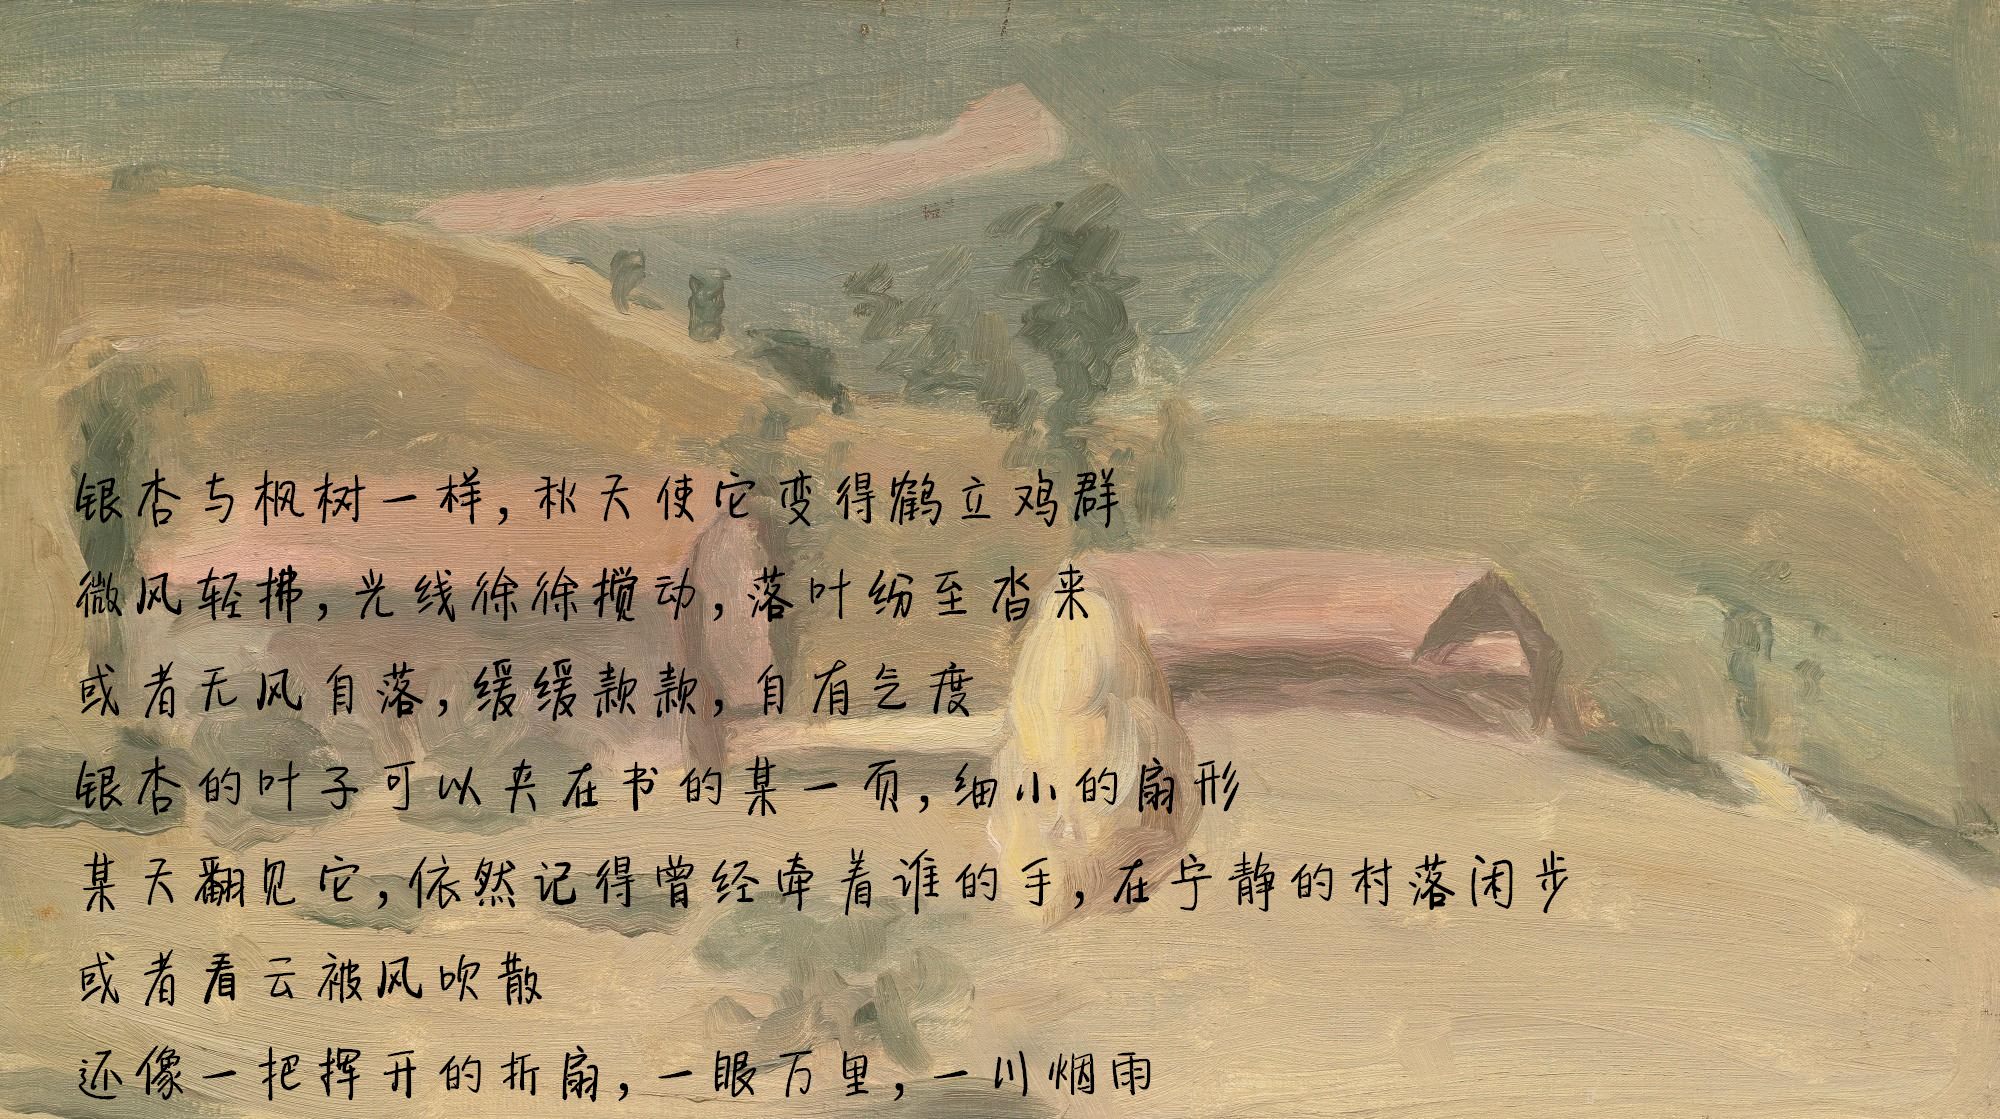 银杏与枫树一样,秋天使它变得鹤立鸡群
微风轻拂,光线徐徐搅动,落叶纷至沓来
或者无风自落,缓缓款款,自有气度
银杏的叶子可以夹在书的某一页,细小的扇形
某天翻见它,依然记得曾经牵着谁的手,在宁静的村落闲步
或者看云被风吹散
还像一把挥开的折扇,一眼万里,一川烟雨